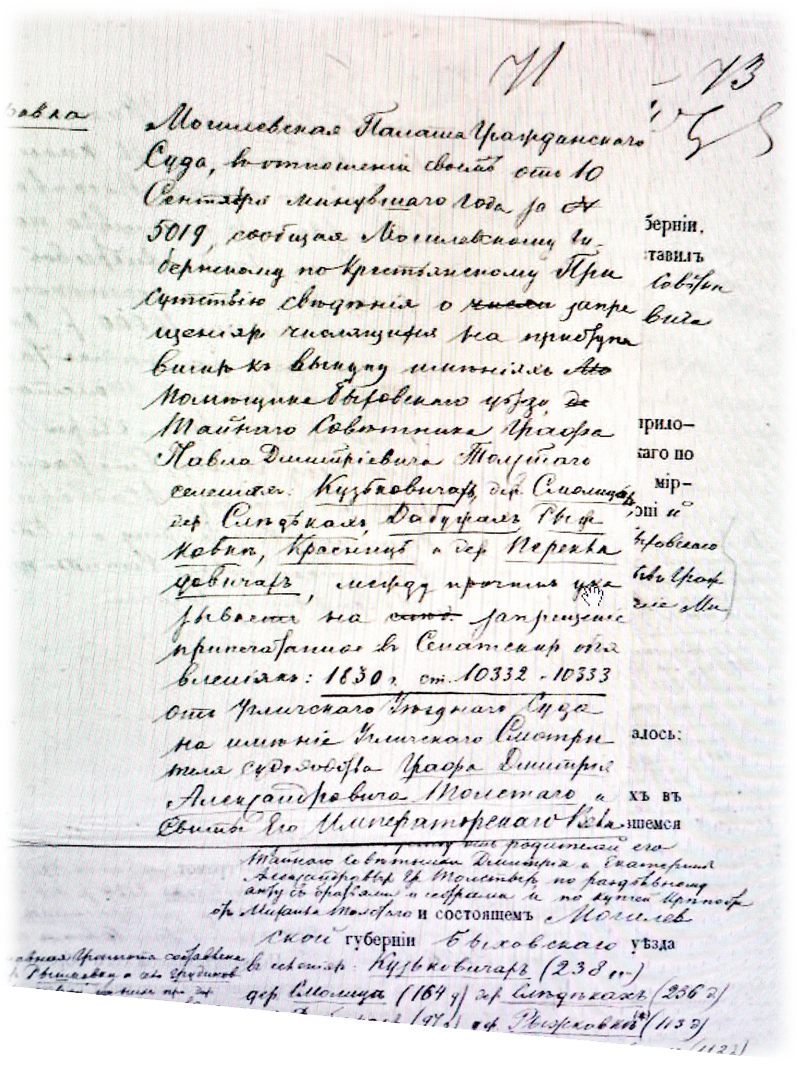 71
73
Могилевская Палата Гражданскаго
Суда, въ отношеніи своемъ отъ 10
Сентября минувшаго года за №
5019, сообщая Могилевскому Гу-
бернскому по Крестьянскому При
сутствію свѣдѣнія о числи запре
щеніяхъ числящихся на приступа
вшихъ къ выкупу имѣніяхъ
Помѣщика Быховскаго уѣзда, де
Тайнаго Совѣтника Графа
Павла Дмитріевича Толстаго
селеніяхъ: Кузьковичахъ, дер. Смолицахъ,
дер. Слѣдкахъ, Дабужахъ, Рыж
ковки, Красницѣ и дер. Перекла
довичахъ, между прочимъ ука
зываетъ на запрещеніе
припечатанное въ Сенатскихъ объя
вленіяхъ: 1830 г. ст. 10332 - 10333
отъ Угличскаго Уѣзднаго Суда
на имѣніе Угличскаго Смотри
теля судоходства Графа Дмитрія
Александровича Толстаго и
Свиты Его Императорскаго Вели
берніи,
ставилъ
Совѣтн
вича
прило-
каго по
мір-
ыховскаго
Граф
алось:
хъ въ
вшемся
родителей его
Тайнаго Совѣтника Дмитрія и Екатерины
Александровыхъ Гр. Толстыхъ, по раздѣльному
акту съ братьями и сестрами и по купчей
отъ Михаила Толстаго и состоящемъ Могилев
ской губерніи Быховскаго уѣзда
въ селеніяхъ: Кузьковичахъ (238 д.)
дер. Смолица (164 д) дер. Слѣдкахъ (236 д)
(97 д) дер. Рыжковкѣ (113 д)
Грамота составлена